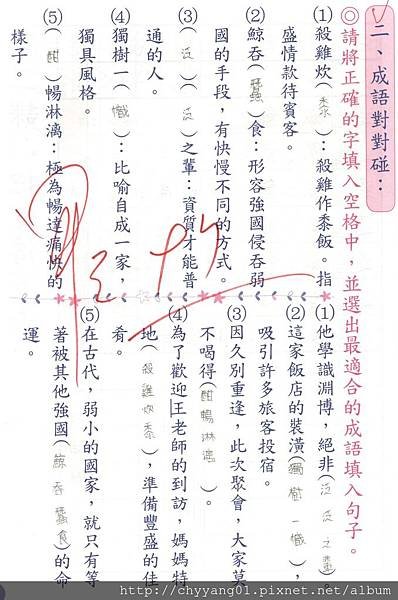 二、成語對對碰：
◎請將正確的字填入空格中，並選出最適合的成語填入句子。
(1)殺雞炊(黍)：殺雞作黍飯。指
盛情款待賓客。
(2)鯨吞(蠶)食：形容強國侵吞弱
國的手段，有快慢不同的方式。
(3)(泛)(泛)之輩：資質才能普
通的人。
(4)獨樹一(幟)：比喻自成一家，
獨具風格。
(5)(酣)暢淋漓：極為暢達痛快的
樣子。
(1)他學識淵博，絕非(泛泛之輩)。
(2)這家飯店的裝潢(獨樹一幟)，
吸引許多旅客投宿。
(3)因久別重逢，此次聚會，大家莫
不喝得(酣暢淋漓)。
(4)為了歡迎王老師的到訪，媽媽特
地(殺雞炊黍)，準備豐盛的佳
肴。
(5)在古代，弱小的國家，就只有等
著被其他強國(鯨吞蠶食)的命
運。
http://chyyang01.pixnet.net/album